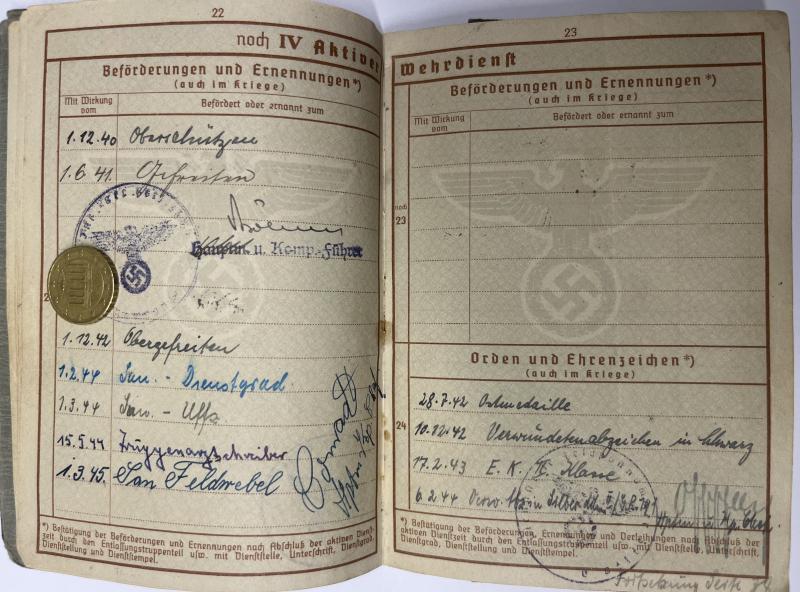 22
noch IV Aktiver
Beförderungen und Ernennungen*)
(auch im Kriege)
Mit Wirkung vom
Befördert oder ernannt zum
1.12.40 Oberschützen
1.6.41. Gefreiten
Hauptm. u. Komp.-Führer
1.12.42 Obergefreiten
1.2.44 San.-Dienstgrad
1.3.44 San.-Uffz.
15.5.44 Truppenarztschreiber
1.3.45. San Feldwebel
*) Bestätigung der Beförderungen und Ernennungen nach Abschluß der aktiven Dienst-
zeit durch den Entlassungstruppenteil usw. mit Dienststelle, Unterschrift, Dienstgrad,
Dienststellung und Dienststempel.
23
Wehrdienst
Beförderungen und Ernennungen*)
(auch im Kriege)
Mit Wirkung vom
Befördert oder ernannt zum
noch
23
Orden und Ehrenzeichen*)
(auch im Kriege)
28.7.42 Ostmedaille
24
10.12.42 Verwundetenabzeichen in Schwarz
17.2.43 E.K. II. Klasse
6.2.44 Verw. in Silber
*) Bestätigung der Beförderungen, Ernennungen und Verleihungen nach Abschluß der
aktiven Dienstzeit durch den Entlassungstruppenteil usw. mit Dienststelle, Unterschrift,
Dienstgrad, Dienststellung und Dienststempel.
Fortsetzung Seite